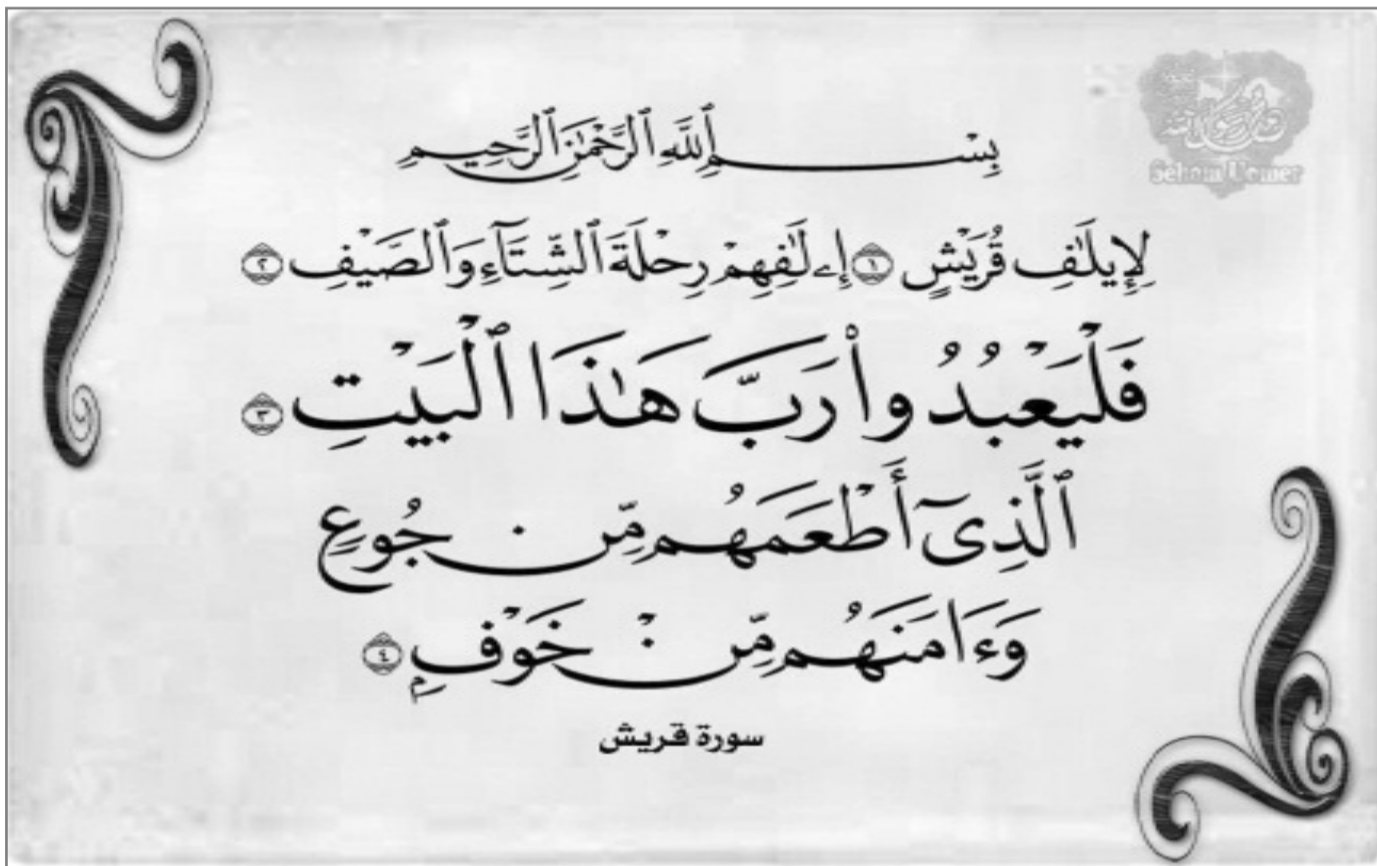 بِسْمِ ٱللَّهِ ٱلرَّحْمَٰنِ ٱلرَّحِيمِ
لِإِيلَٰفِ قُرَيْشٍ ١ إِۦلَٰفِهِمْ رِحْلَةَ ٱلشِّتَآءِ وَٱلصَّيْفِ ٢
فَلْيَعْبُدُوا۟ رَبَّ هَٰذَا ٱلْبَيْتِ ٣
ٱلَّذِىٓ أَطْعَمَهُم مِّن جُوعٍ
وَءَامَنَهُم مِّنْ خَوْفٍۭ ٤
سورة قريش